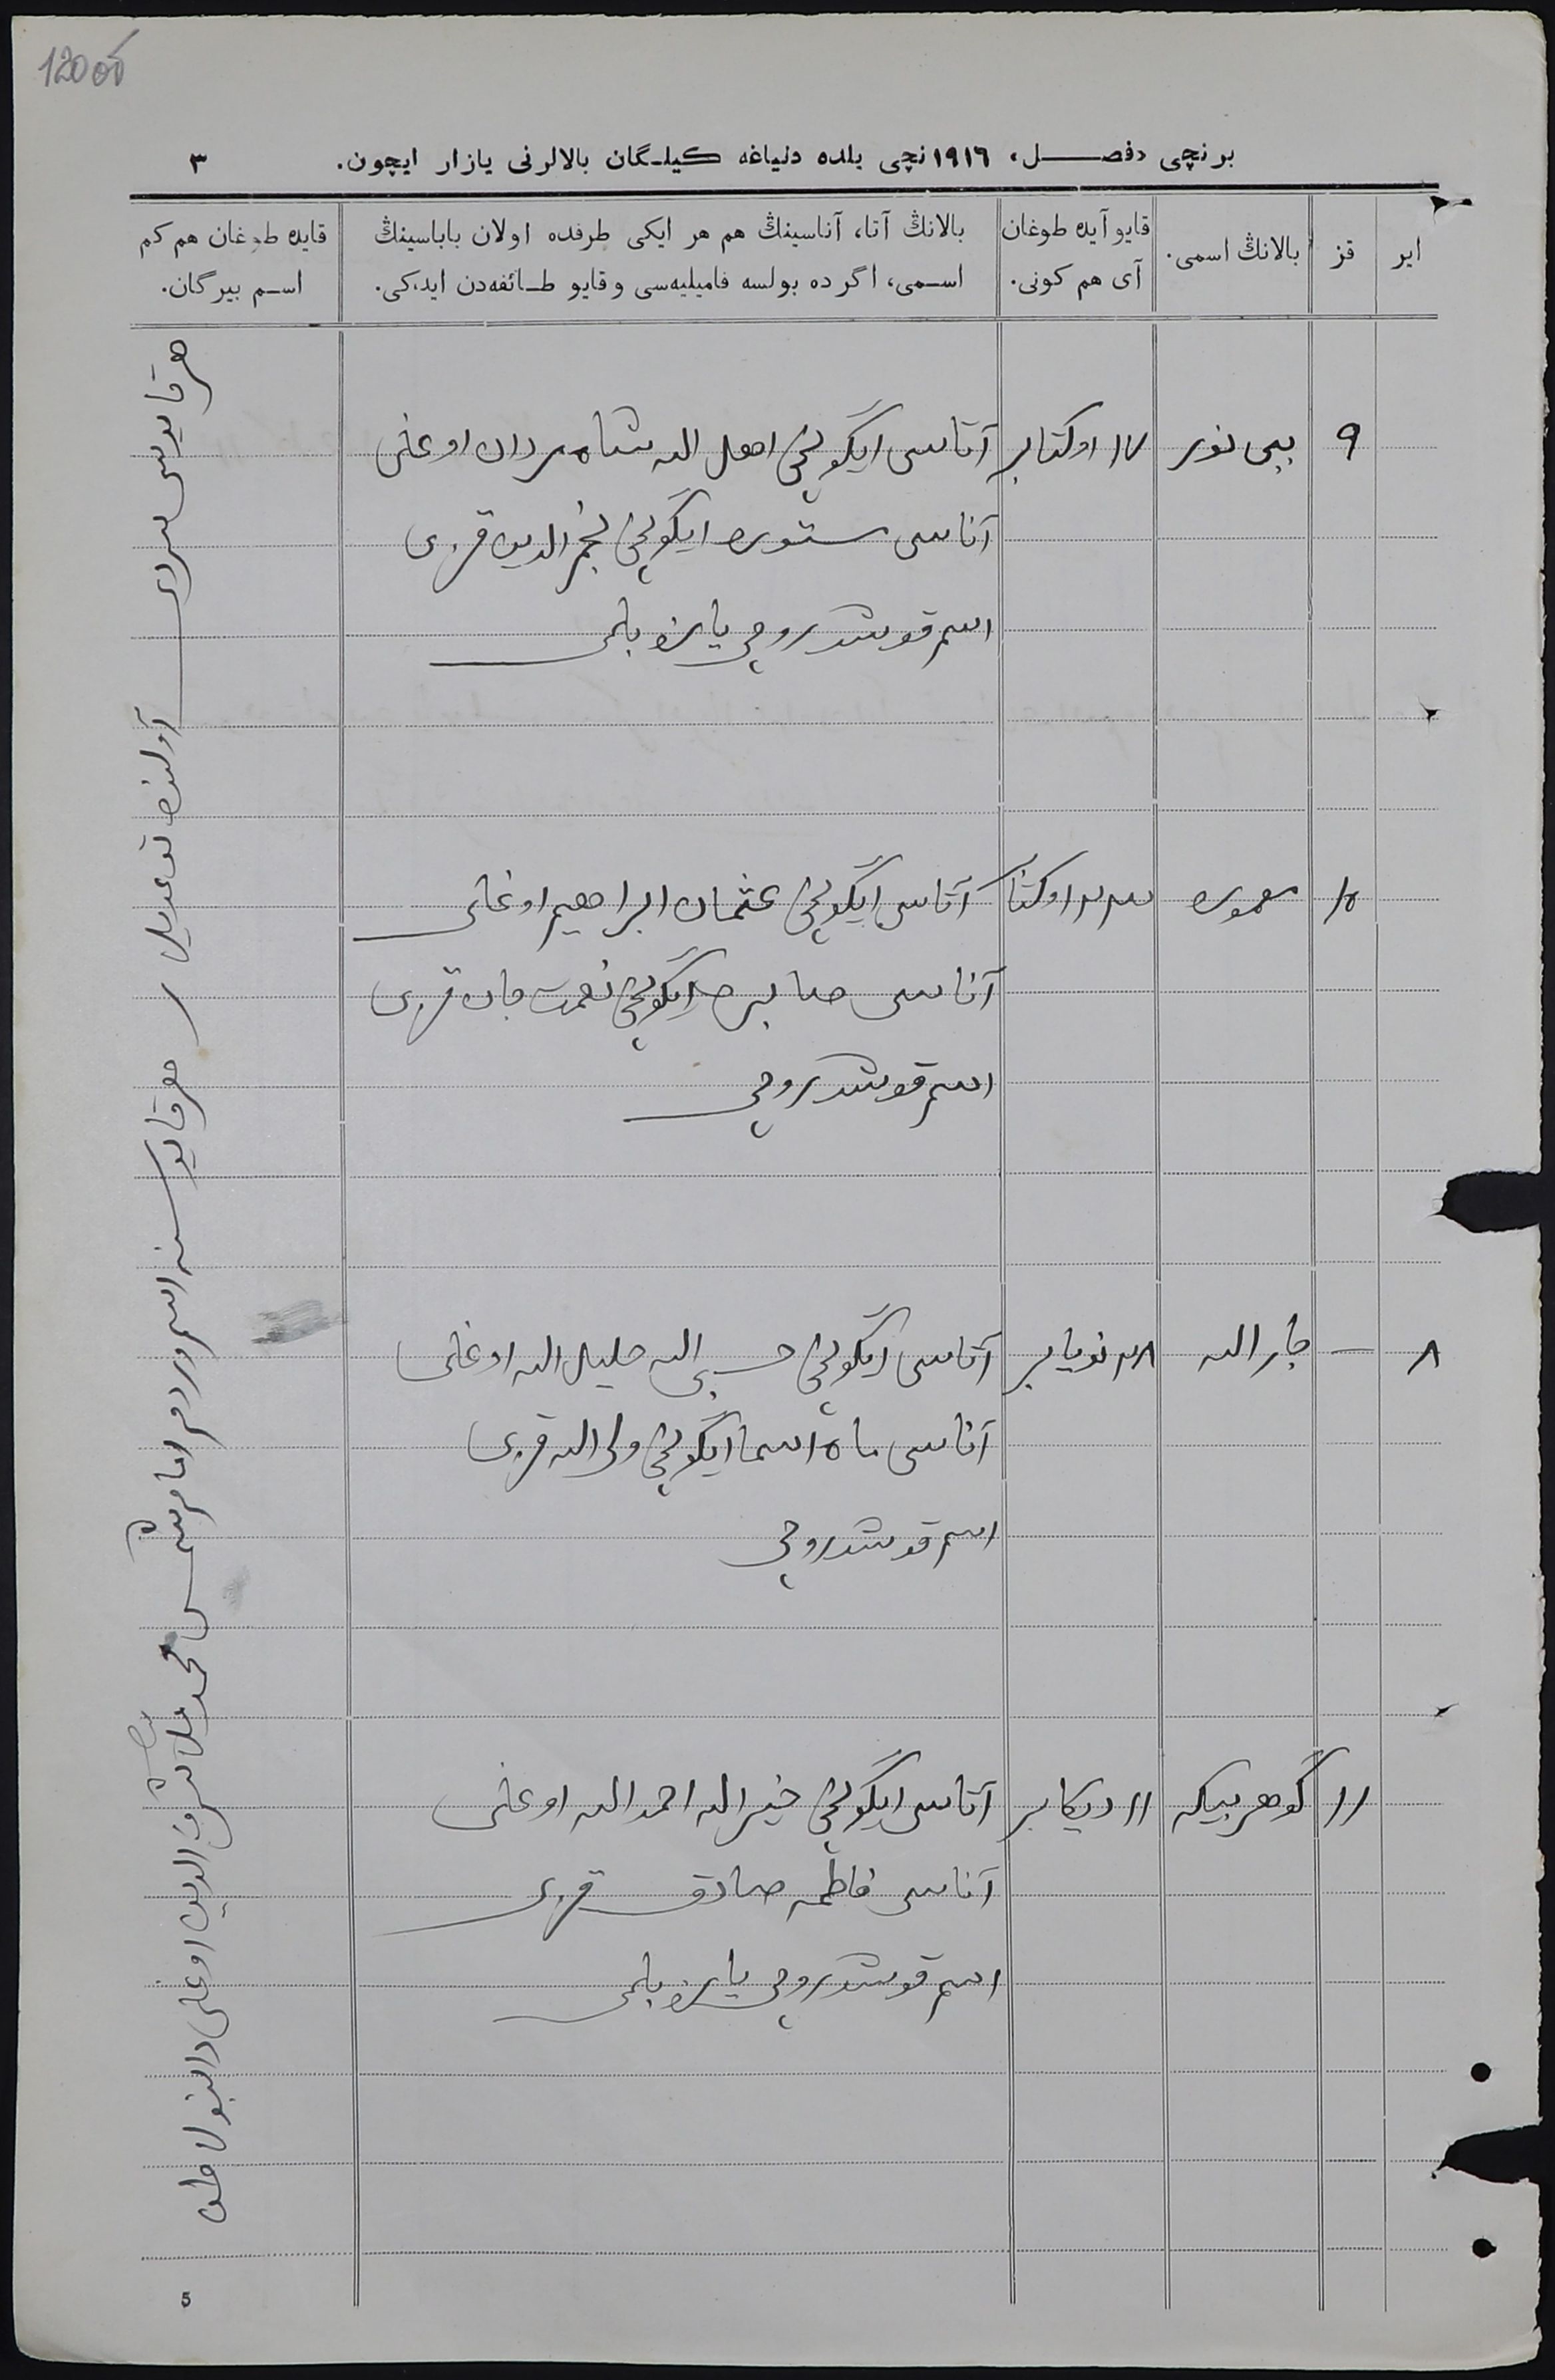 120 об
برنچی فصل، ١٩١٦نچی یلده دنیاغه کیلگان بالالرنی یازار ایچون.
٣
ایر
قز
بالانڭ اسمی.
قایو آیده طوغان
آی هم کونی.
بالانڭ آتا، آناسینڭ هم هر ایکی طرفده اولان باباسینڭ
اسمی، اگرده بولسه فامیلیه‌سی و قایو طائفه‌دن ایدکی.
قایده طوغان هم کم
اسم بیرگان.
٩
بیبی نور
١٧ اوکتابر
آتاسی ایگونچی اهل الله شاه مردان اوغلی
آناسی ستوره ایگونچی نجم الدین قزی
اسم قوشدروچی یازو بلمی
١٠
معموره
٢٣ اوکتا
آتاسی ایگونچی عثمان ابراهیم اوغلی
آناسی صابره ایگونچی نعمت جان قزی
اسم قوشدروچی
٨
—
جار الله
٢٨ نویابر
آتاسی ایگونچی حسبی الله خلیل الله اوغلی
آناسی ماه اسما ایگونچی ولی الله قزی
اسم قوشدروچی
١١
گوهربیکه
١١ دیکابر
آتاسی ایگونچی خیر الله احمد الله اوغلی
آناسی فاطمه صادق قزی
اسم قوشدروچی یازو بلمی
هر قایوسی آولنده هر قایوسینه اسم ویردم امام محمد شرف الدین اوغلی
5